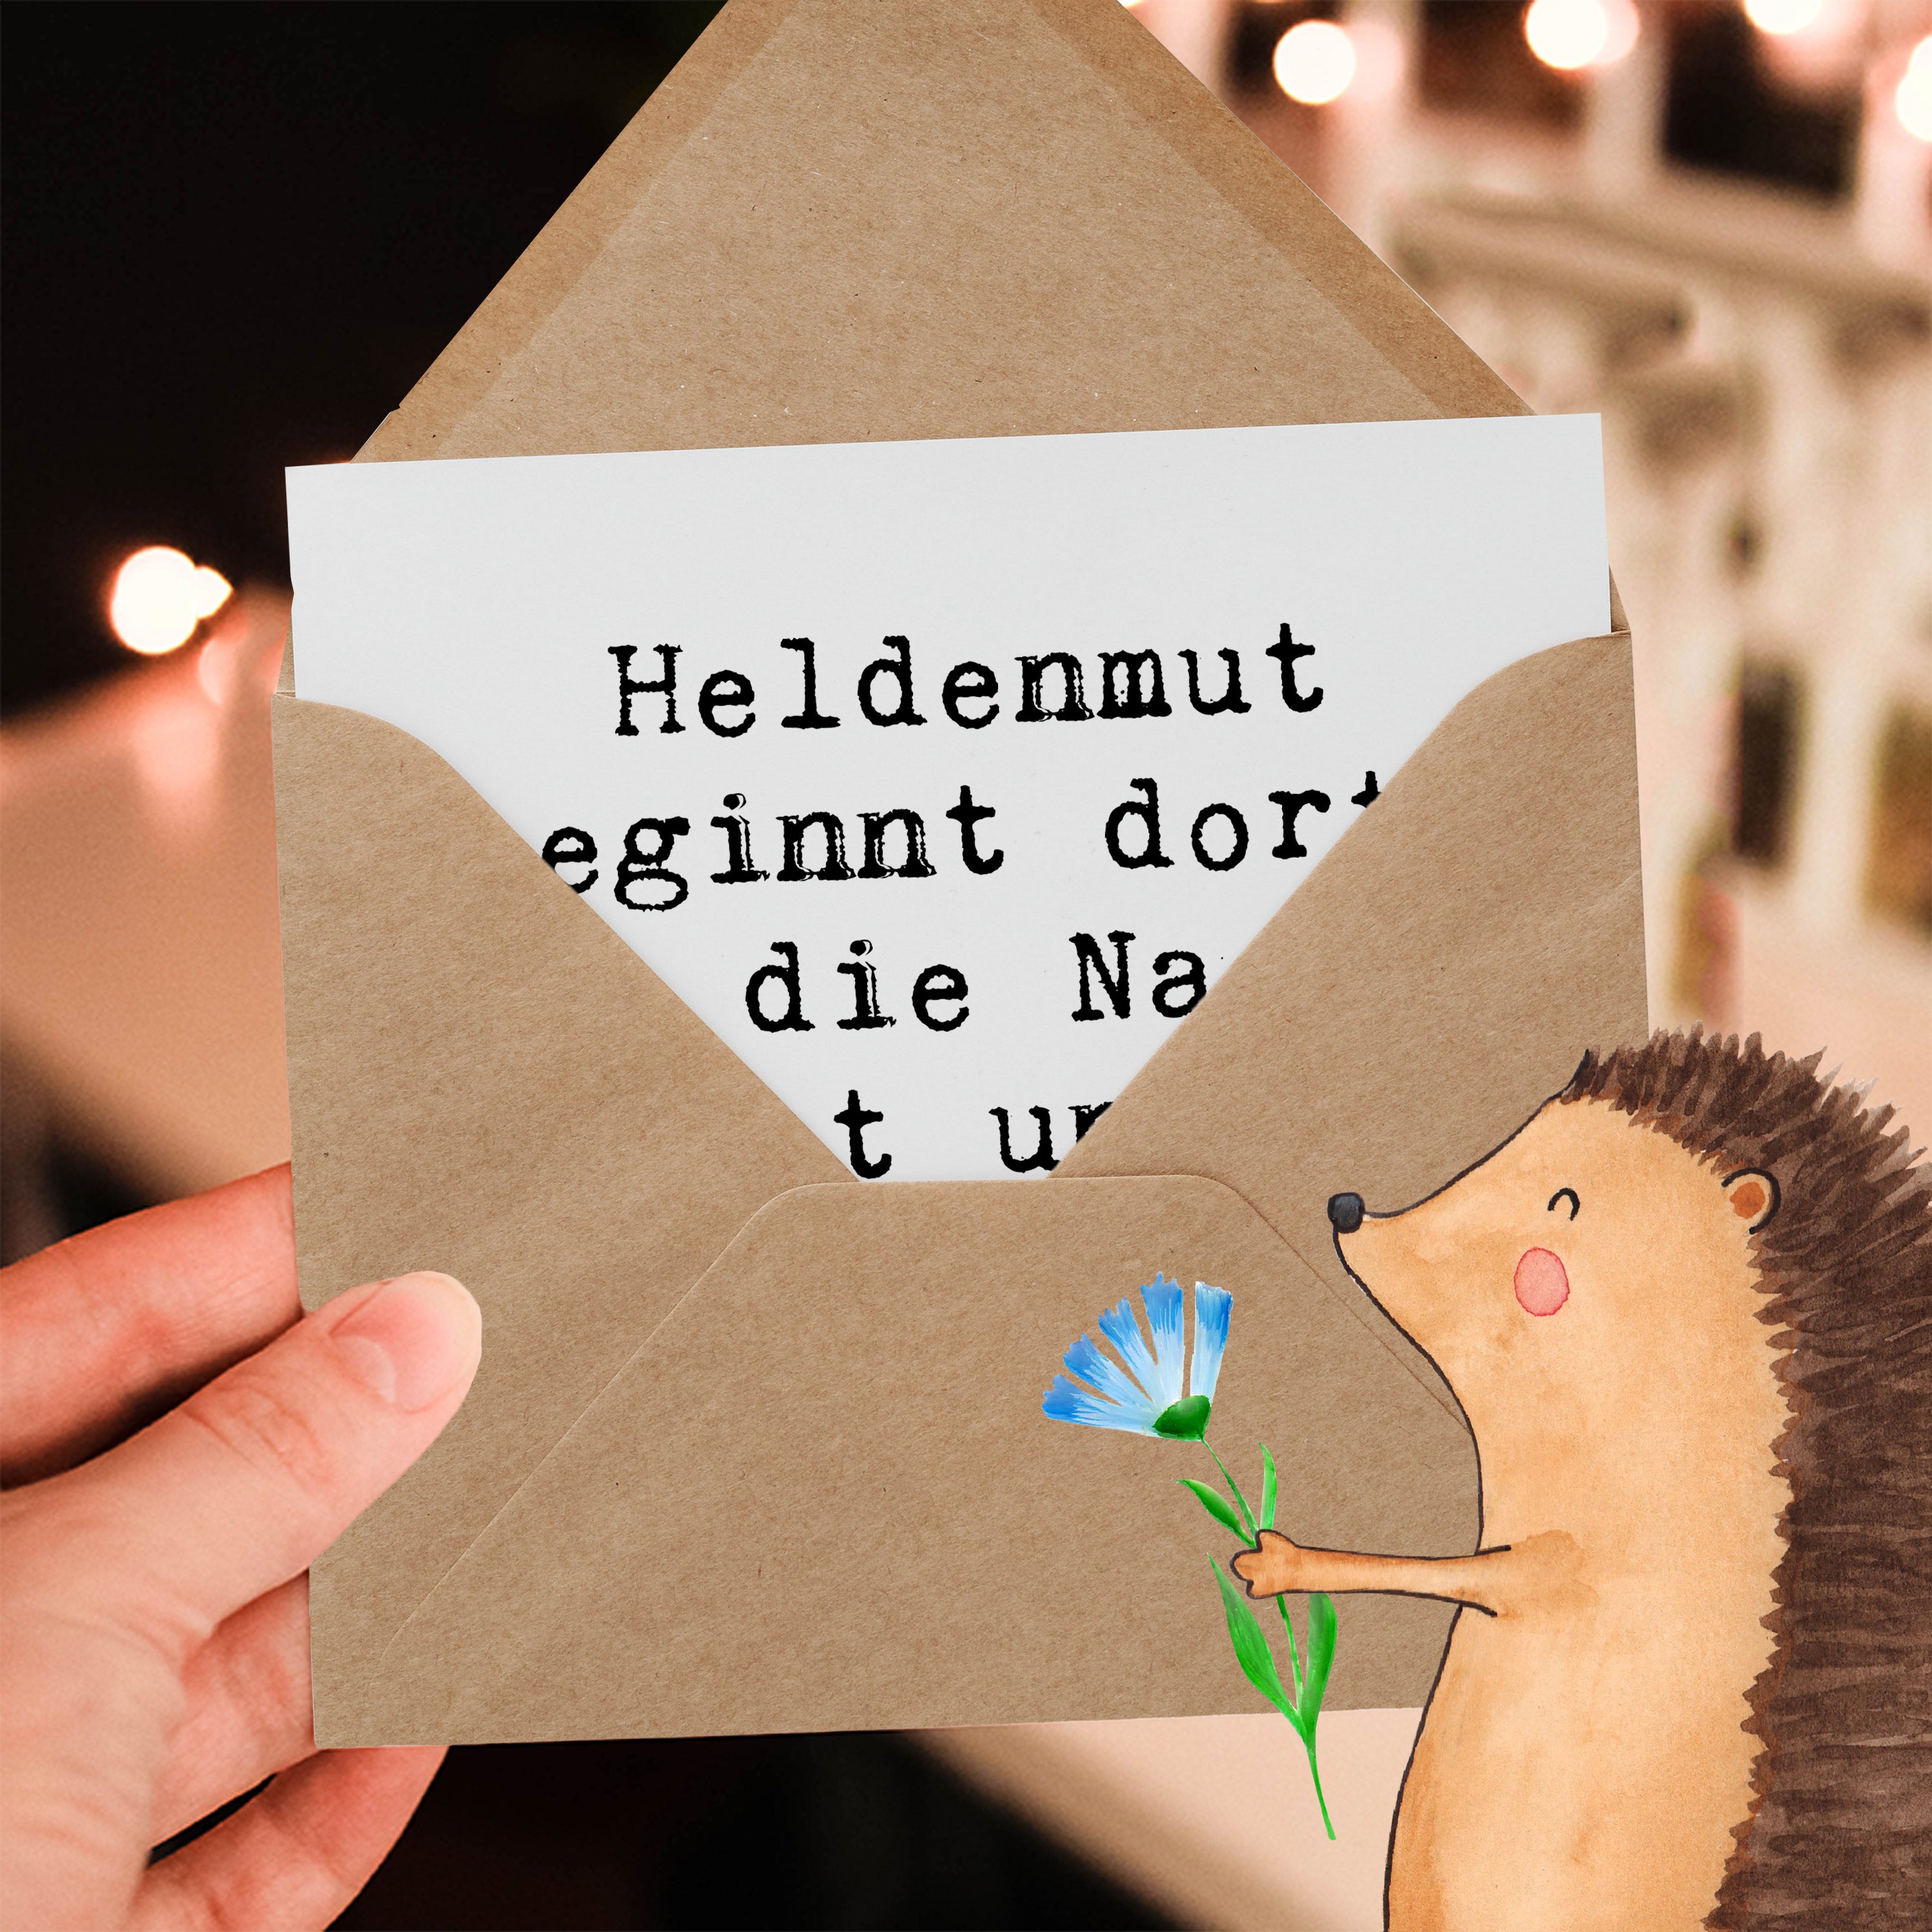 Heldenmut
eginnt dort
die Na
t un